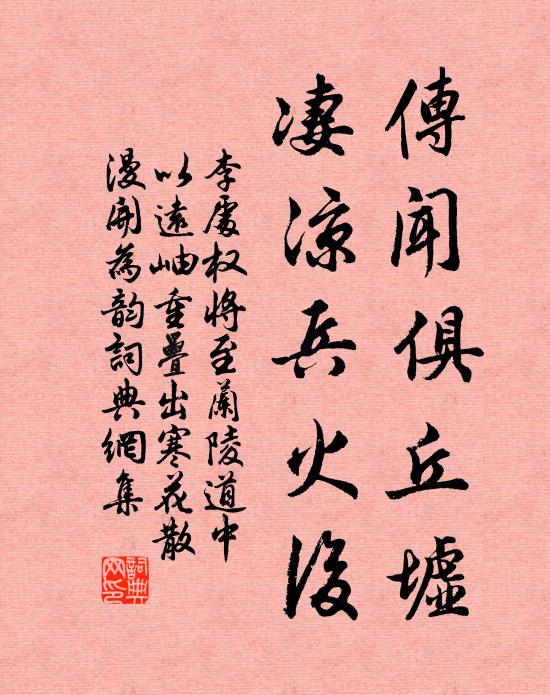 傳聞俱丘墟
凄涼兵火後
李處权將至蘭陵道中
以遠岫重疊出寒花散
漫開為韵詞典網集
詞典
网印